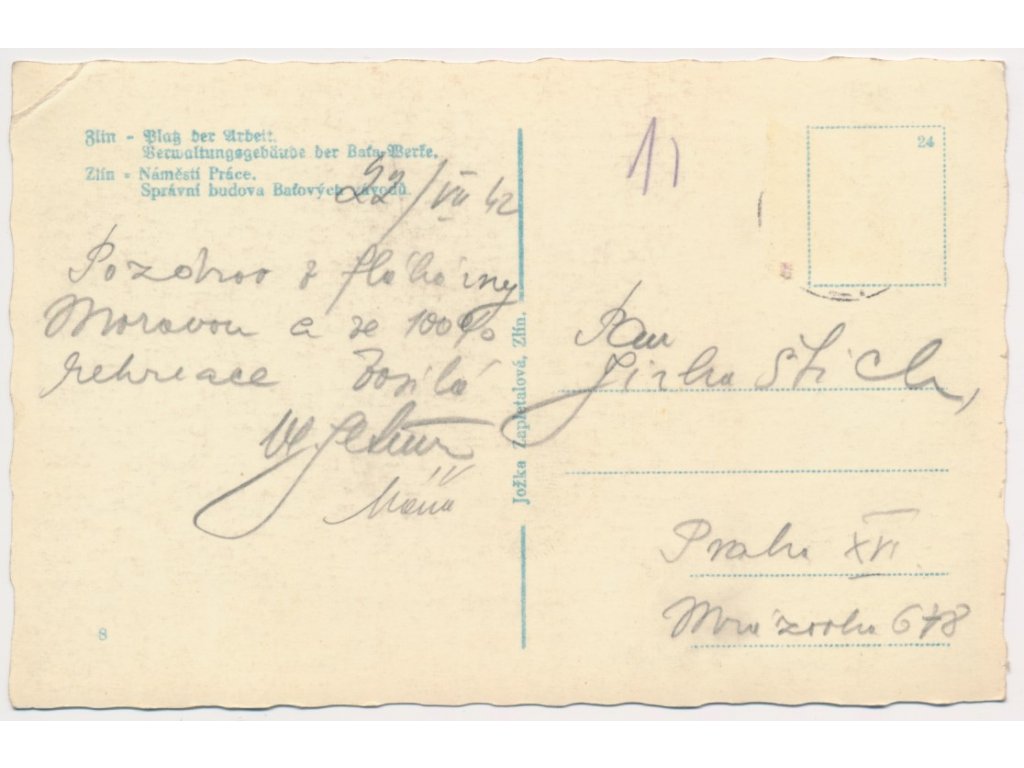 Zlín - Platz der Arbeit.
Verwaltungsgebäude der Baťa-Werke.
Zlín - Náměstí Práce.
Správní budova Baťových závodů.
22/VII 42
1)
24
Pozdrav z
Moravou a ze 100%
rekreace
Máňa
Jožka Zapletalová, Zlín.
Pan
Jirka Štich,
Praha XVI
Mrázovka 678
8